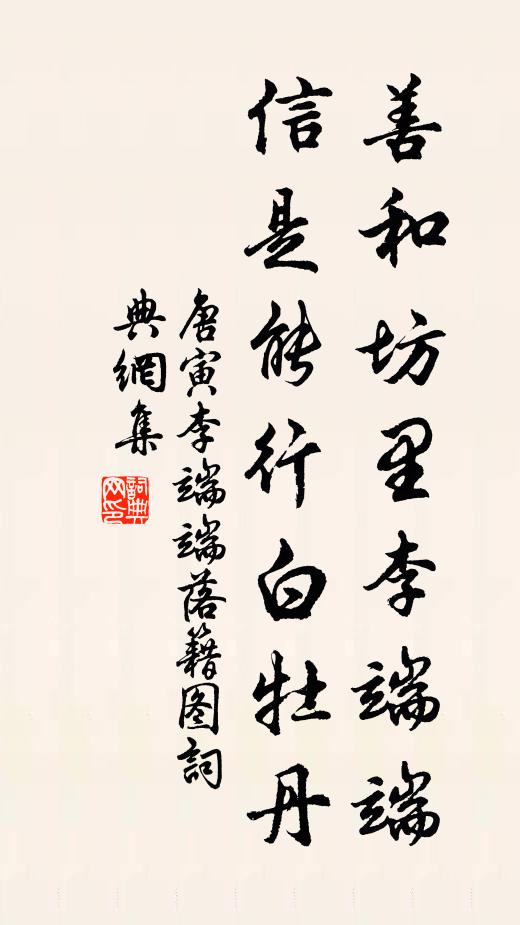 善和坊里李端端
信是能行白牡丹
唐寅李端端落籍图詞
典網集
詞典
网印